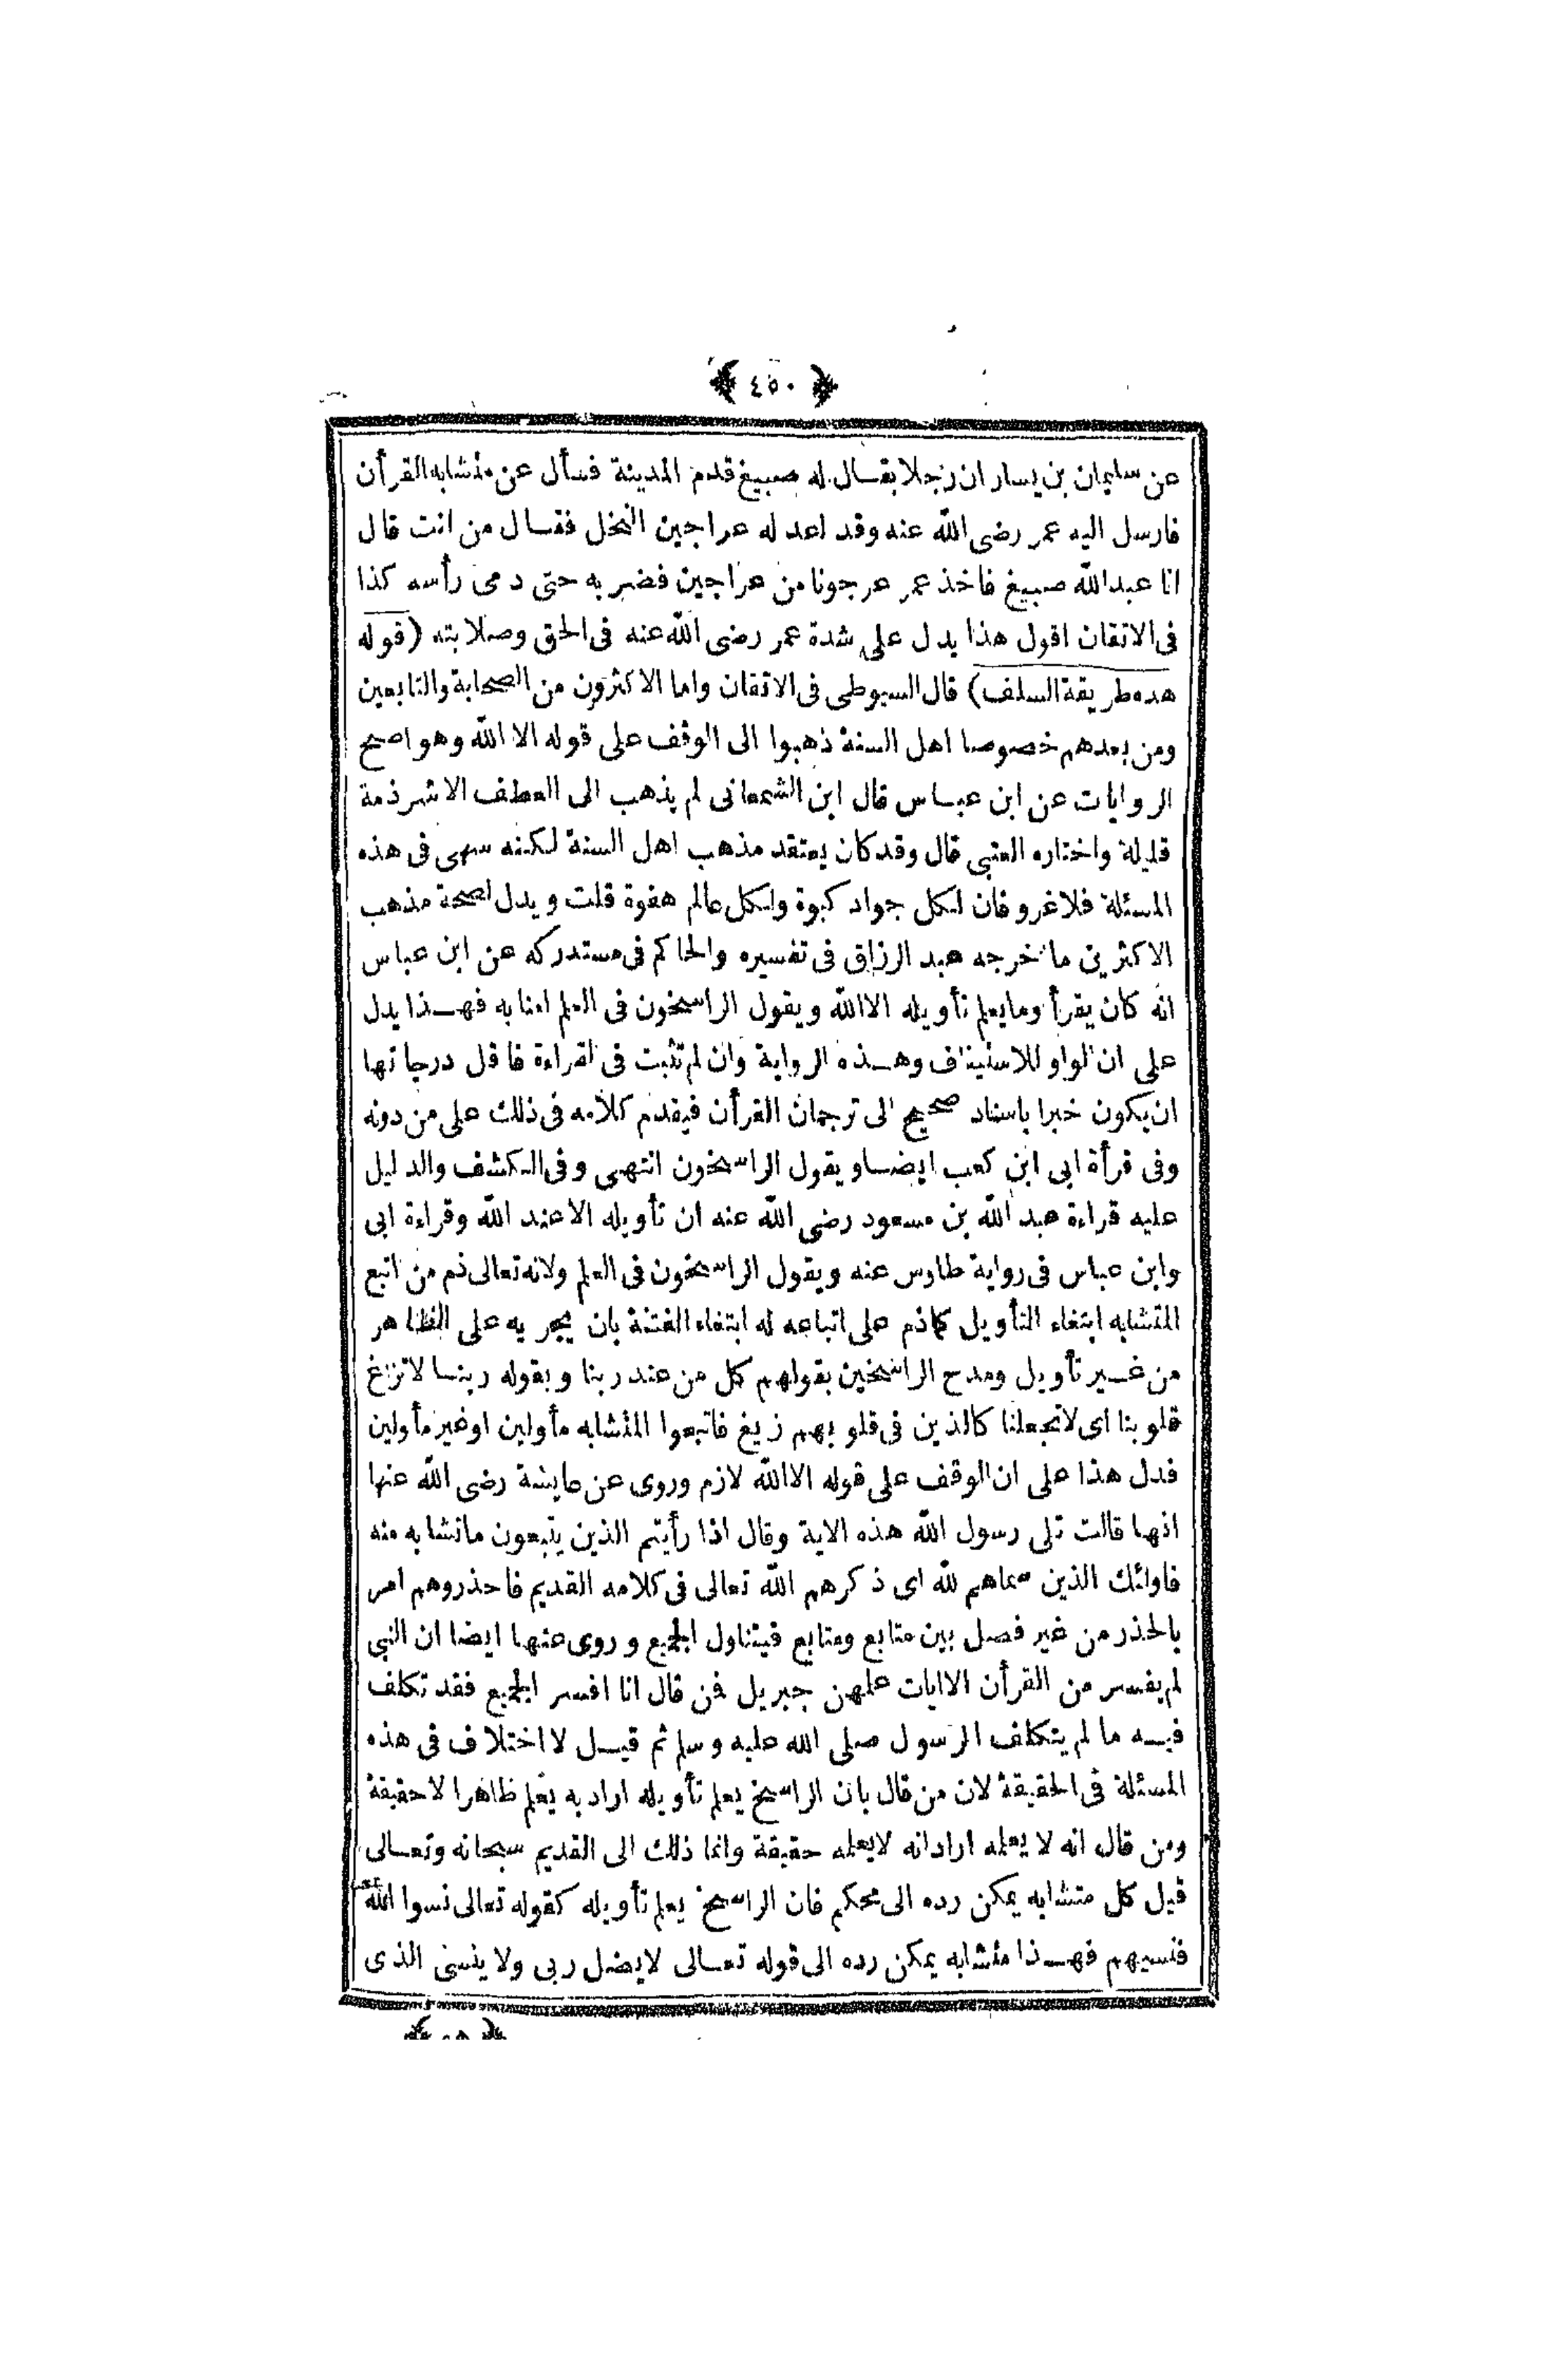 ﴿ ٤٥٠ ﴾
عن سليمان بن يسار ان رجلا يقال له صبيغ قدم المدينة فسأل عن متشابه القرأن
فارسل اليه عمر رضى الله عنه وقد اعد له عراجين النخل فقال من انت قال
انا عبد الله صبيغ فاخذ عمر عرجونا من عراجين فضربه حتى دمى رأسه كذا
فى الاتقان اقول هذا يدل على شدة عمر رضى الله عنه فى الحق وصلابته (قوله
هذه طريقة السلف) قال السيوطى فى الاتقان واما الاكثرون من الصحابة والتابعين
ومن بعدهم خصوصا اهل السنة ذهبوا الى الوقف على قوله الا الله وهو اصح
الروايات عن ابن عباس قال ابن الشمعانى لم يذهب الى العطف الا شرذمة
قليلة واختاره العتبى قال وقد كان يعتقد مذهب اهل السنة لكنه سهى فى هذه
المسئلة فلا غرو فان لكل جواد كبوة ولكل عالم هفوة قلت ويدل لصحة مذهب
الاكثرين ما خرجه عبد الرزاق فى تفسيره والحاكم فى مستدركه عن ابن عباس
انه كان يقرأ وما يعلم تأويله الا الله ويقول الراسخون فى العلم امنا به فهذا يدل
على ان الواو للاستيناف وهذه الرواية وان لم تثبت فى القراءة فاقل درجاتها
ان يكون خبرا باسناد صحيح الى ترجمان القرأن فيقدم كلامه فى ذلك على من دونه
وفى قرأة ابى ابن كعب ايضا ويقول الراسخون انتهى وفى الكشف والدليل
عليه قراءة عبد الله بن مسعود رضى الله عنه ان تأويله الا عند الله وقراءة ابى
وابن عباس فى رواية طاوس عنه ويقول الراسخون فى العلم ولانه تعالى ذم من اتبع
المتشابه ابتغاء التأويل كما ذم على اتباعه له ابتغاء الفتنة بان يجريه على الظاهر
من غير تأويل ومدح الراسخين بقولهم كل من عند ربنا وبقوله ربنا لا تزغ
قلوبنا اى لا تجعلنا كالذين فى قلوبهم زيغ فاتبعوا المتشابه مأولين او غير مأولين
فدل هذا على ان الوقف على قوله الا الله لازم وروى عن عايشة رضى الله عنها
انها قالت تلى رسول الله هذه الاية وقال اذا رأيتم الذين يتبعون ما تشابه منه
فاولئك الذين سماهم لله اى ذكرهم الله تعالى فى كلامه القديم فاحذروهم امر
بالحذر من غير فصل بين متابع ومتابع فيتناول الجميع وروى عنها ايضا ان النبى
لم يفسر من القرأن الا ايات علمهن جبريل فمن قال انا افسر الجميع فقد تكلف
فيه ما لم يتكلف الرسول صلى الله عليه وسلم ثم قيل لا اختلاف فى هذه
المسئلة فى الحقيقة لان من قال بان الراسخ يعلم تأويله اراد به يعلم ظاهرا لا حقيقة
ومن قال انه لا يعلمه اراد انه لا يعلمه حقيقة وانما ذلك الى القديم سبحانه وتعالى
قيل كل متشابه يمكن رده الى محكم فان الراسخ يعلم تأويله كقوله تعالى نسوا الله
فنسيهم فهذا متشابه يمكن رده الى قوله تعالى لا يضل ربى ولا ينسى الذى